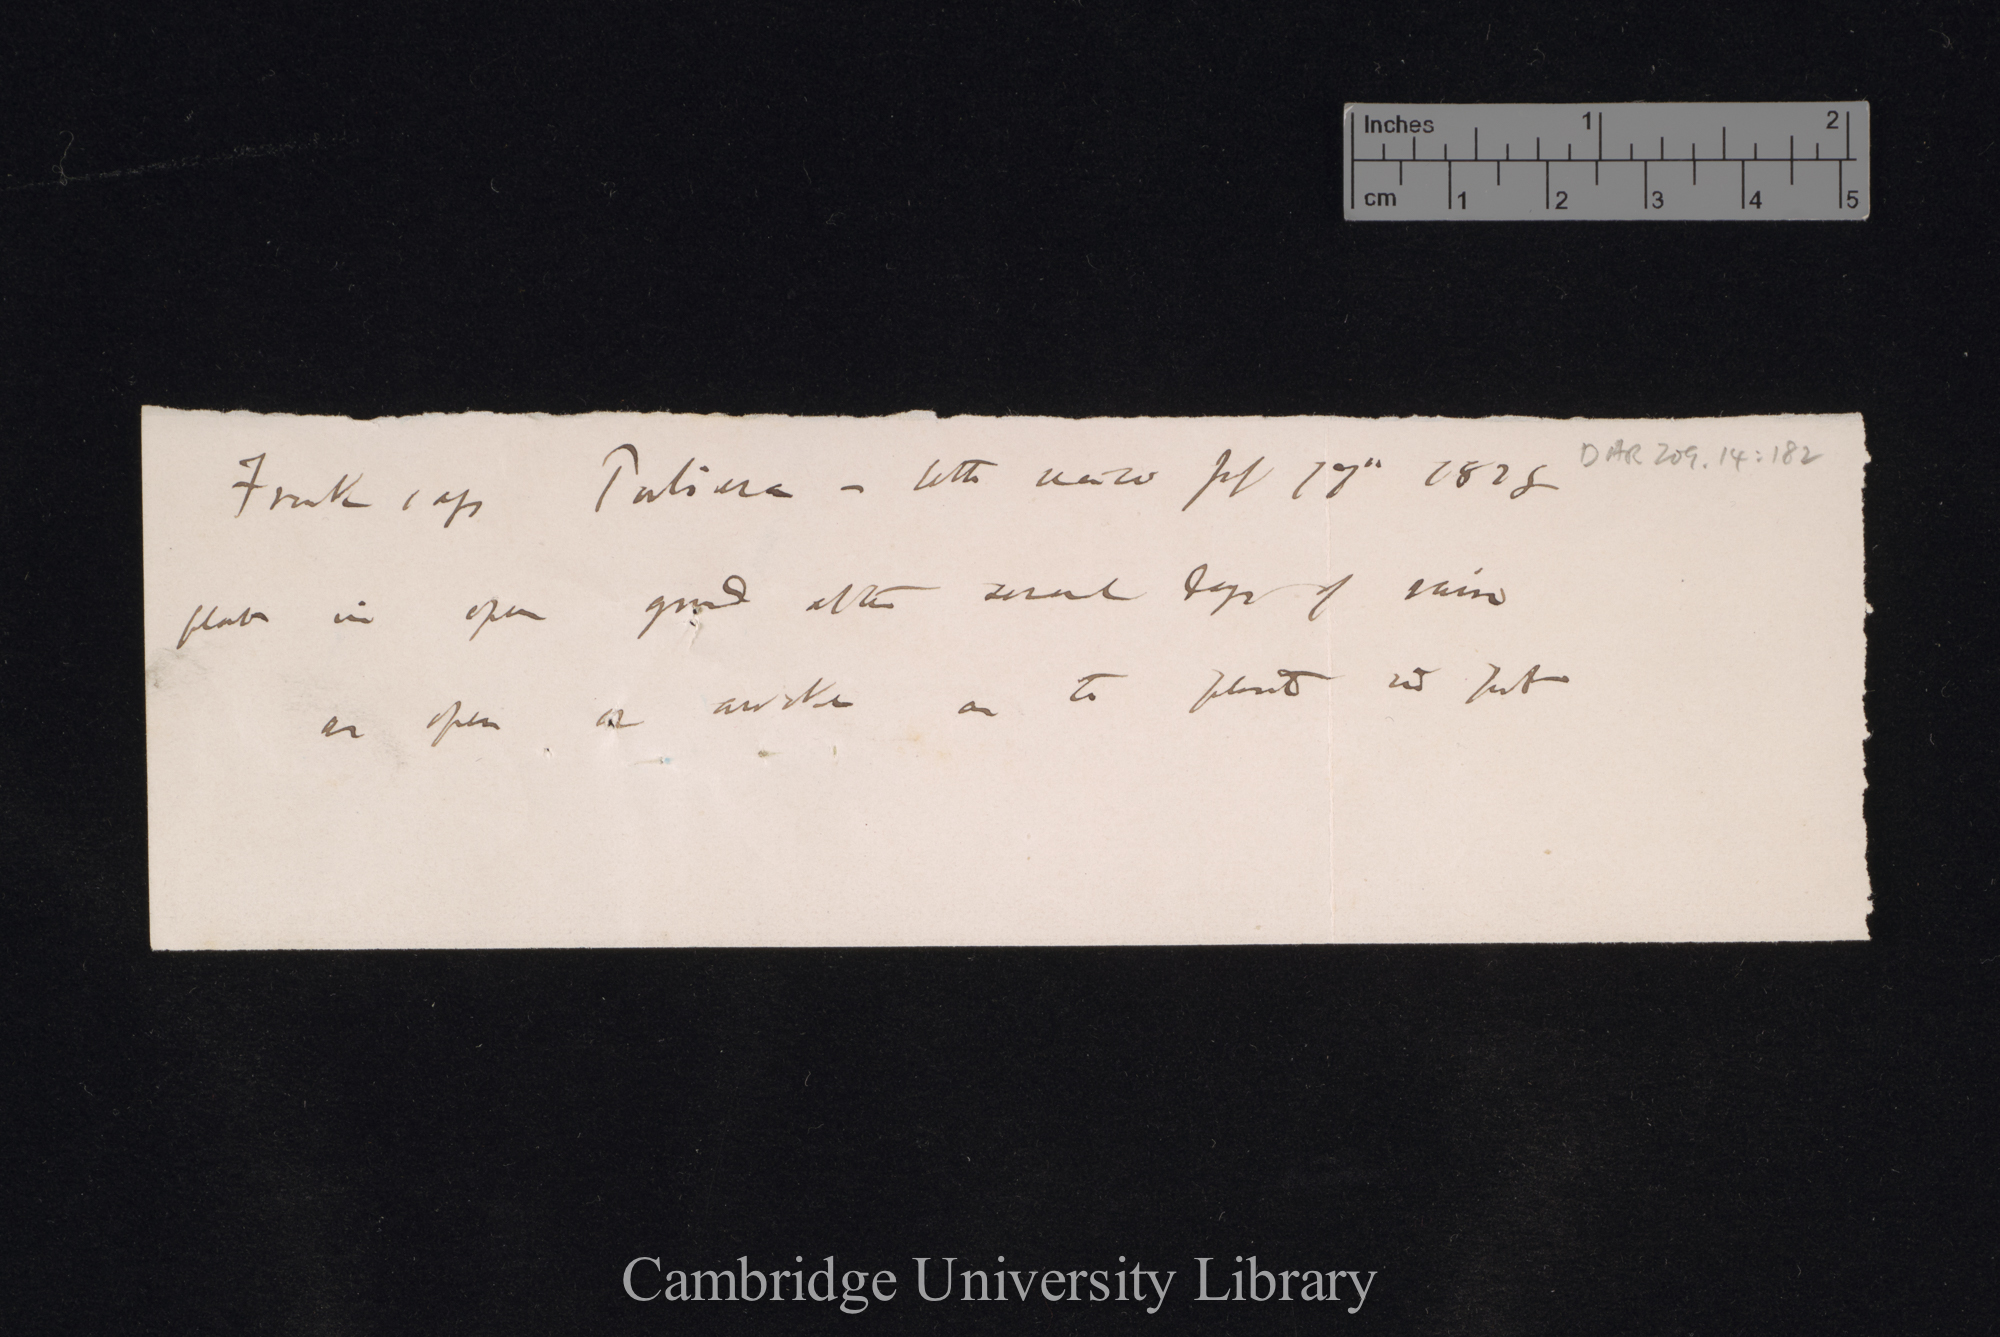 Inches 1 2
cm 1 2 3 4 5
DAR 209.14:182
Frank says Porliera — letter received July 17th 1878
plants in open ground after several days of rain
as open or awake as to plants in pots
Cambridge University Library